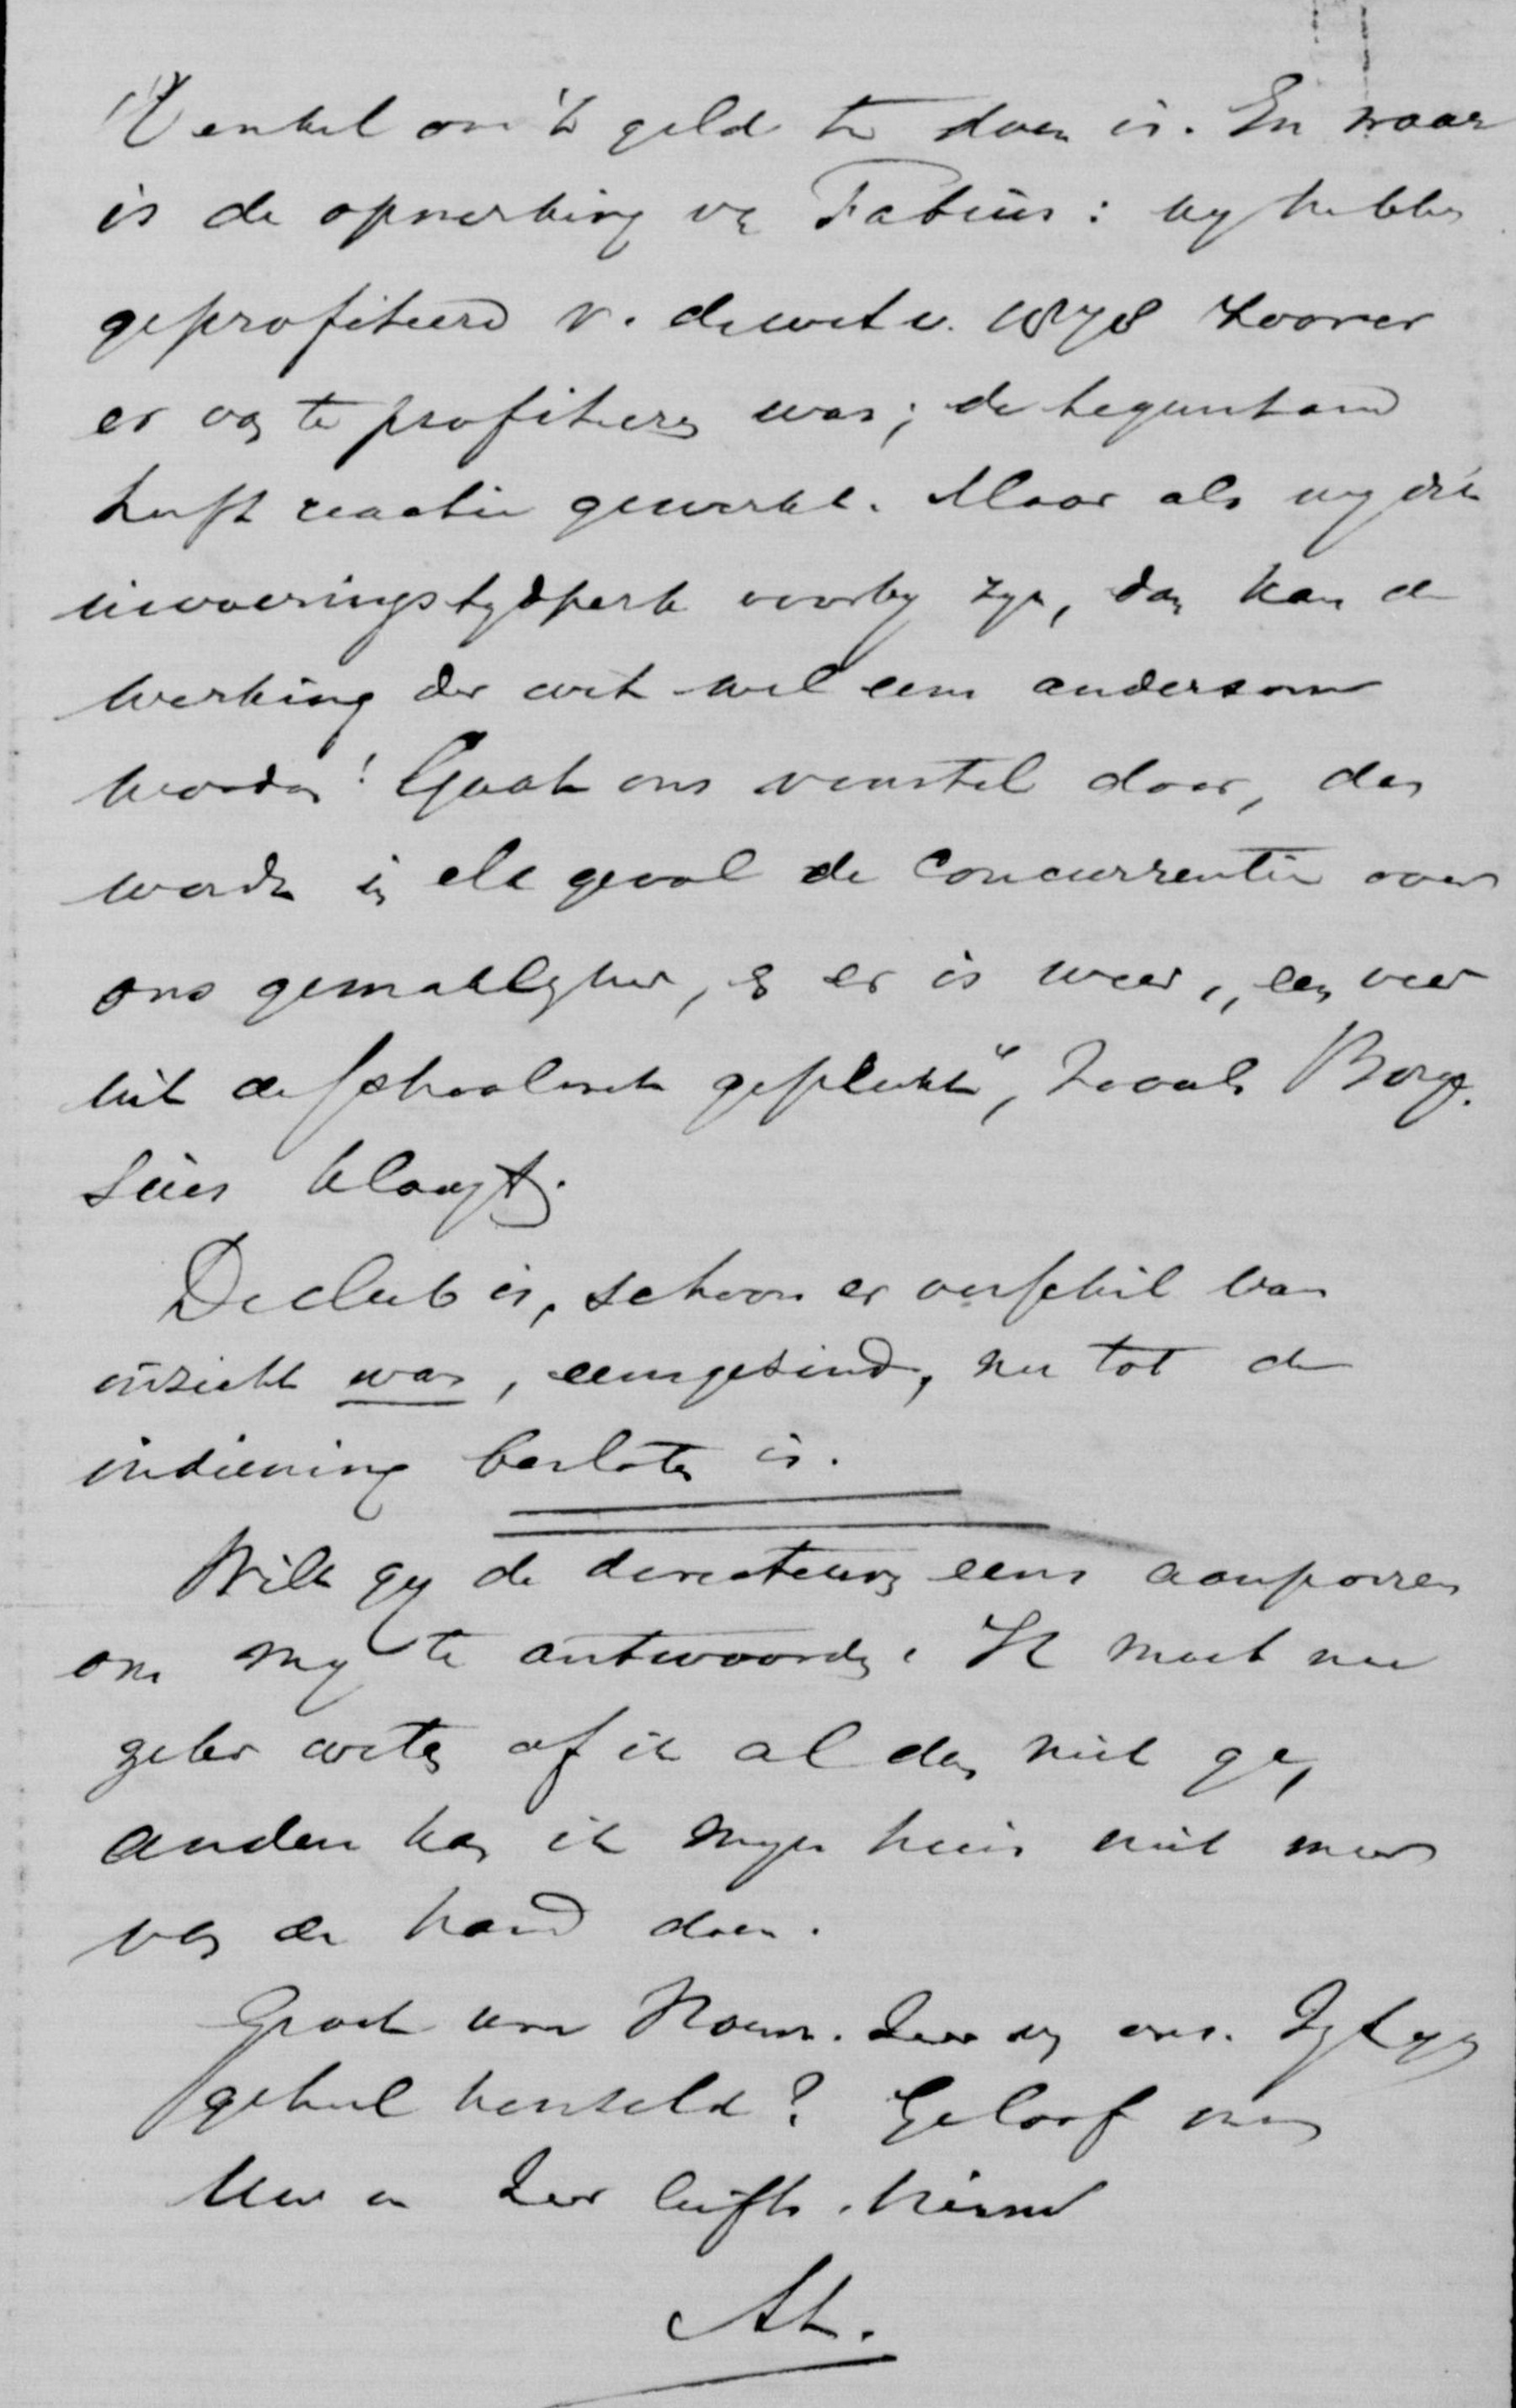 't enkel om 't geld te doen is. En waar
is de opmerking v. Fabius: wy hebben
geprofiteerd v. de wet v. 1878 zoover
er van te profiteeren was; de tegenstand
heeft reactie gewerkt. Maar als wy dit
invoeringstydperk voorby zyn, dan kan de
werking der wet wel eens andersom
worden! Gaat ons voorstel door, dan
wordt in elk geval de concurrentie voor
ons gemakkelyker, en er is weer „een veer
uit de schoolwet geplukt", zooals Borge-
sius klaagt.
De club is, schoon er verschil van
inzicht was, eensgezind, nu tot de
indiening besloten is.
Wilt gy de directeuren eens aanporren
om my te antwoorden. Ik moet nu
zeker weten of ik al dan niet ga,
anders kan ik myn huis niet meer
van de hand doen.
Groet uw zeer van ons. Zyt gy
geheel hersteld? Geloof my
Uw zeer liefh. vriend